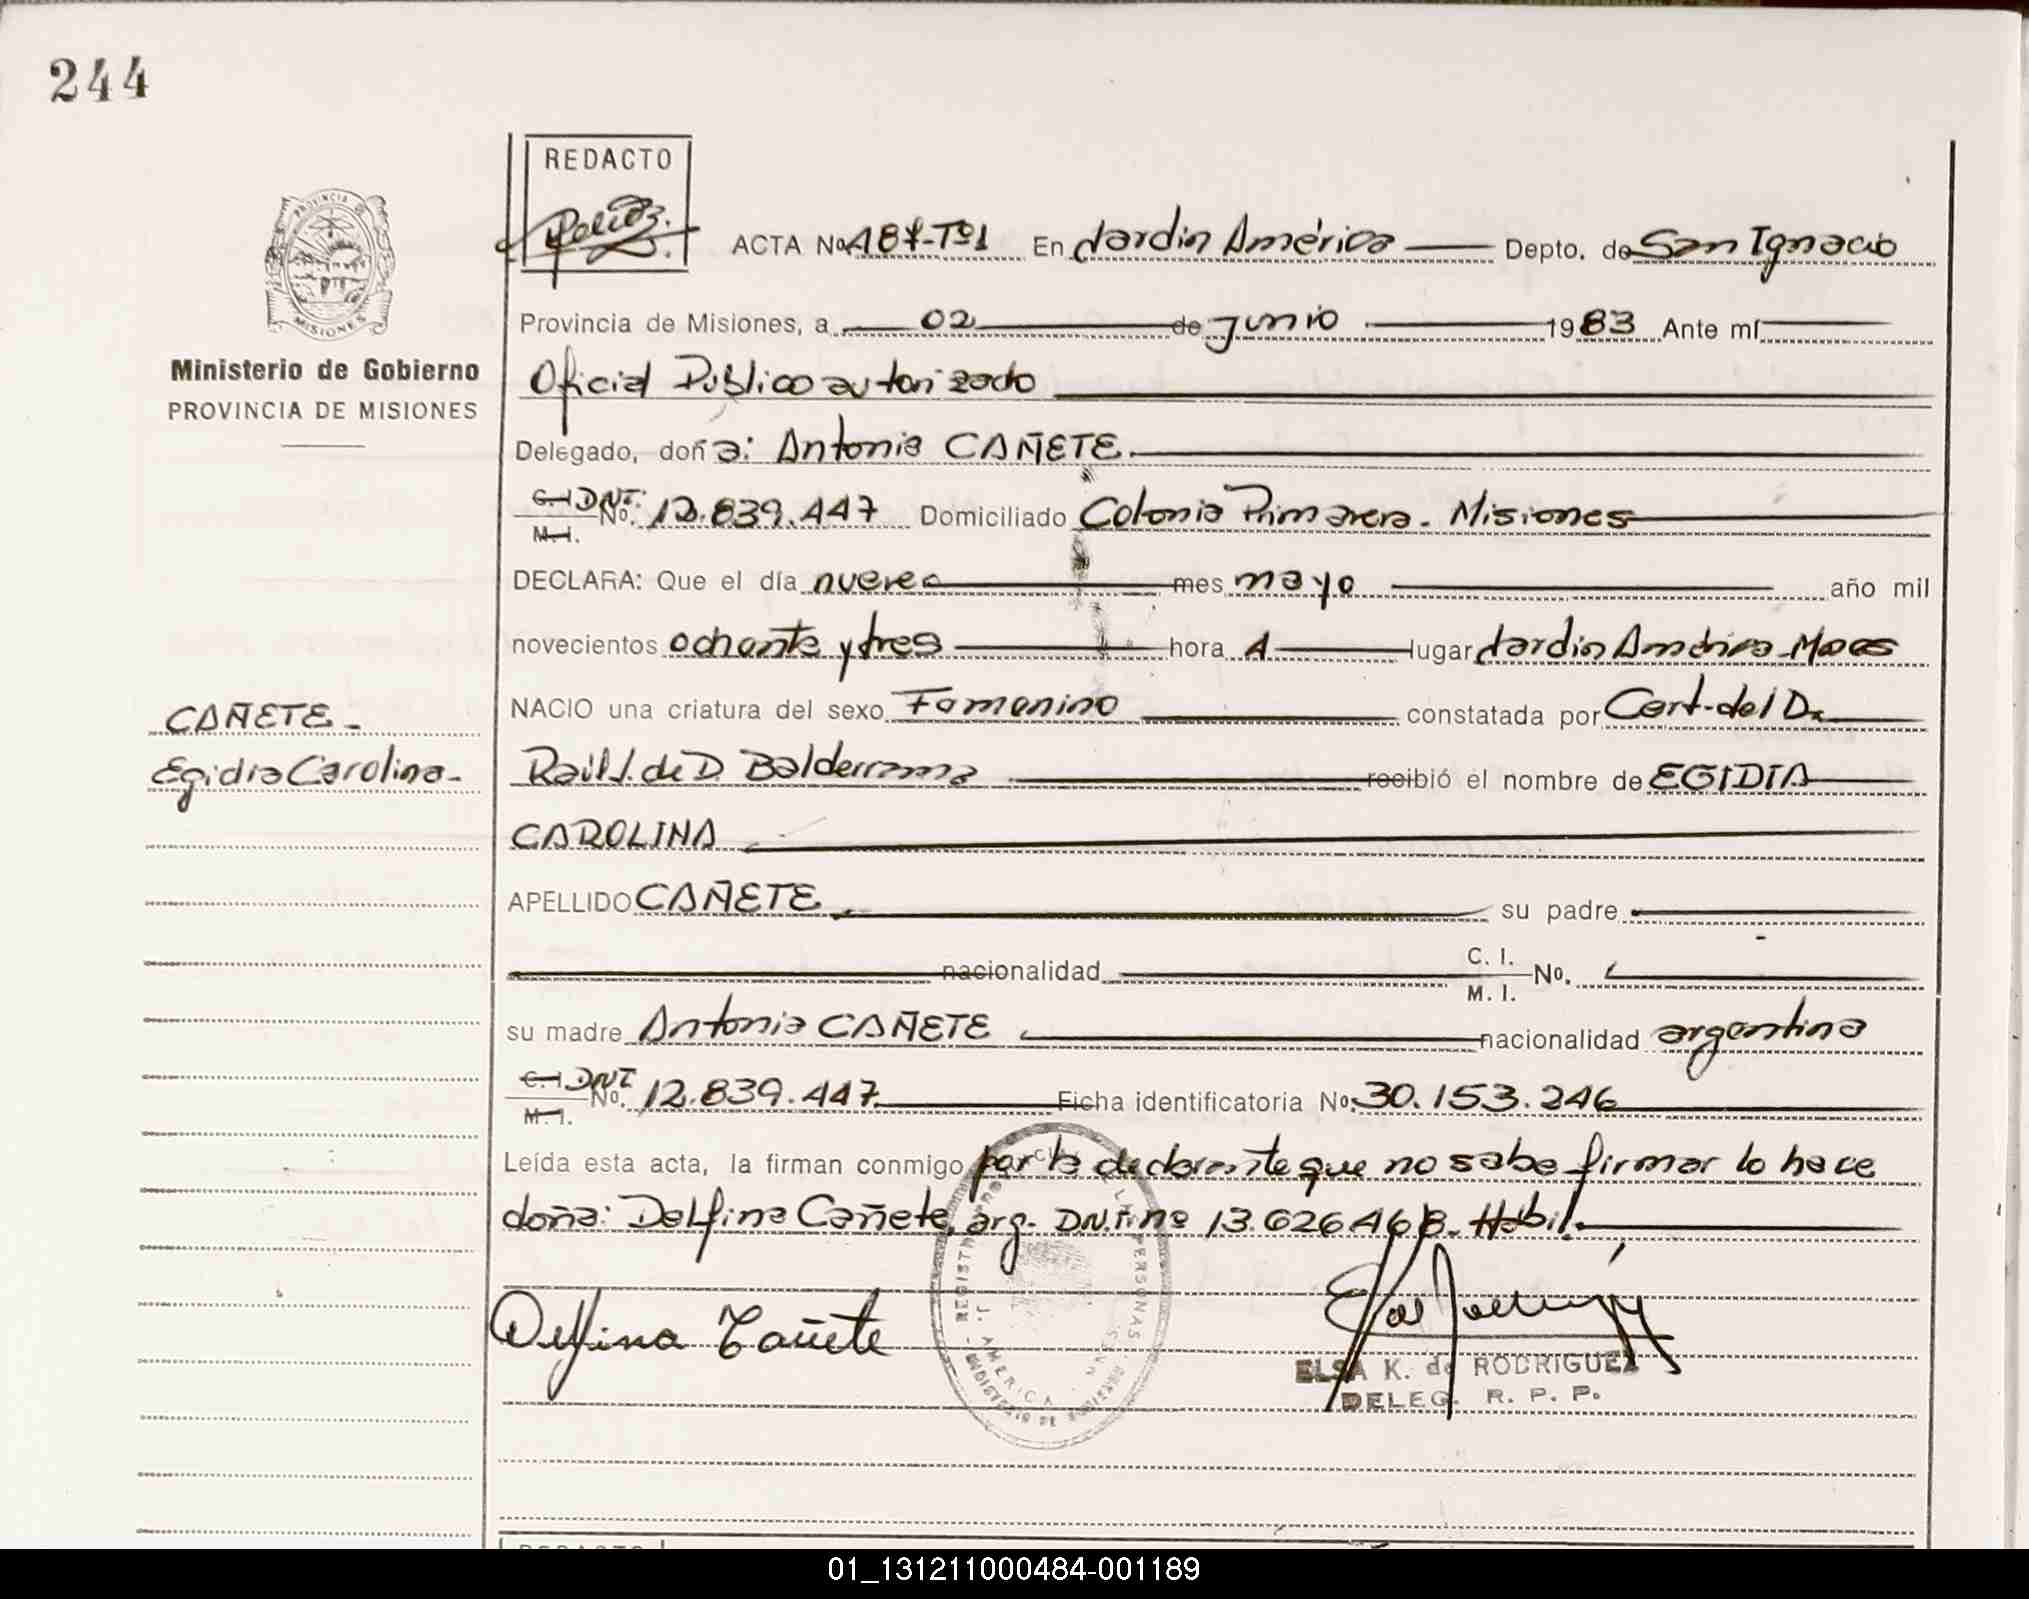 244
REDACTO
ACTA No 187-Tº1 En Jardin América Depto. de San Ignacio
PROVINCIA DE
MISIONES
Provincia de Misiones, a 02 de junio 1983 Ante mí
Ministerio de Gobierno
Oficial Público autorizado
PROVINCIA DE MISIONES
Delegado, doña: Antonia CAÑETE.
C.I DNI. No. 12.839.447 Domiciliado Colonia Primavera. Misiones
M.I.
DECLARA: Que el día nueve mes mayo año mil
novecientos ochenta y tres hora 1 lugar Jardin América-Mnes
CAÑETE-
NACIO una criatura del sexo Femenino constatada por Cert. del Dr.
Egidia Carolina-
Raúl J. de D. Balderrama recibió el nombre de EGIDIA
CAROLINA
APELLIDO CAÑETE su padre
nacionalidad C. I. No.
M. I.
su madre Antonia CAÑETE nacionalidad argentina
C.I DNI No. 12.839.447 Ficha identificatoria No. 30.153.246
M.I.
Leída esta acta, la firman conmigo por la declarante que no sabe firmar lo hace
doña: Delfina Cañete, arg. D.N.I. nº 13.626.468. Hábil.
Delfina Cañete
ELSA K. de RODRIGUEZ
DELEG. R. P. P.
REDACTO
01_131211000484-001189